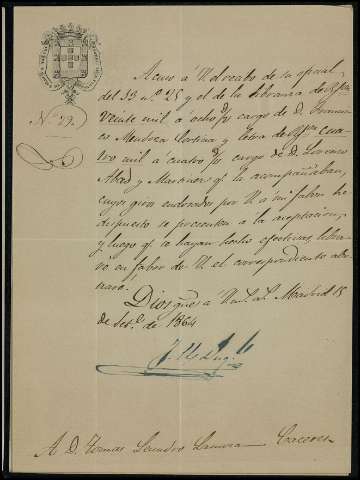 Nº 29.
Acuso á V. el recibo de su oficial
del 13 nº 25 y el de la libranza de
veinte mil á ocho cargo de D. Francis
co Mendoza Cortina y letra de cua
tro mil á cuatro cargo de D. Lorenzo
Abad y Martinez qe la acompañaban,
cuyos giros endosados por V. á mi fabor he
dispuesto se presenten á la aceptacion,
y luego qe la hayan hecho efectiva, libra
ré en fabor de V. el correspondiente abo
naré.
Dios gue á V. Madrid 15
de Set.e de 1864
A D. Tomas Caceres